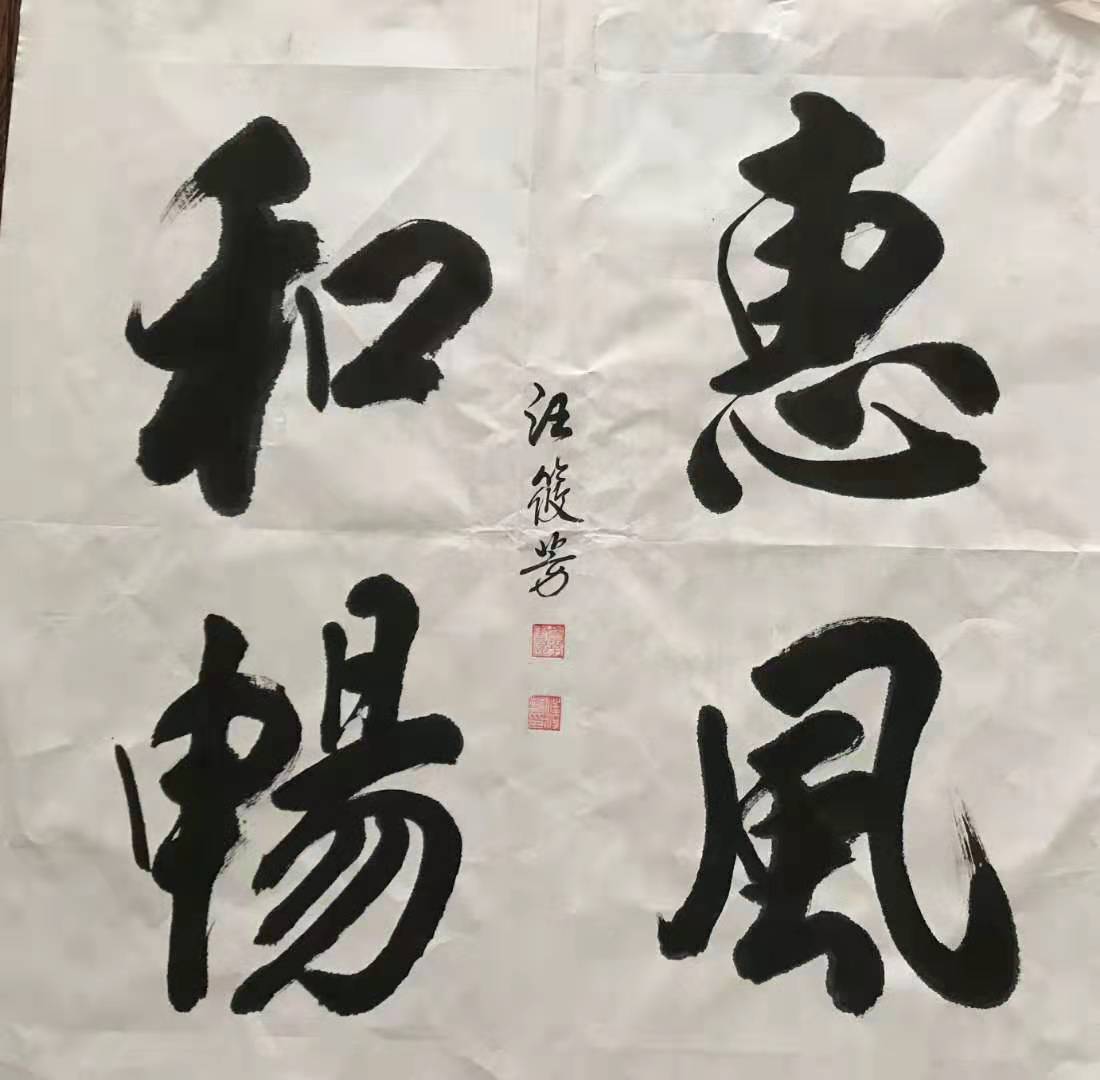 惠風
和暢
汪筱芳